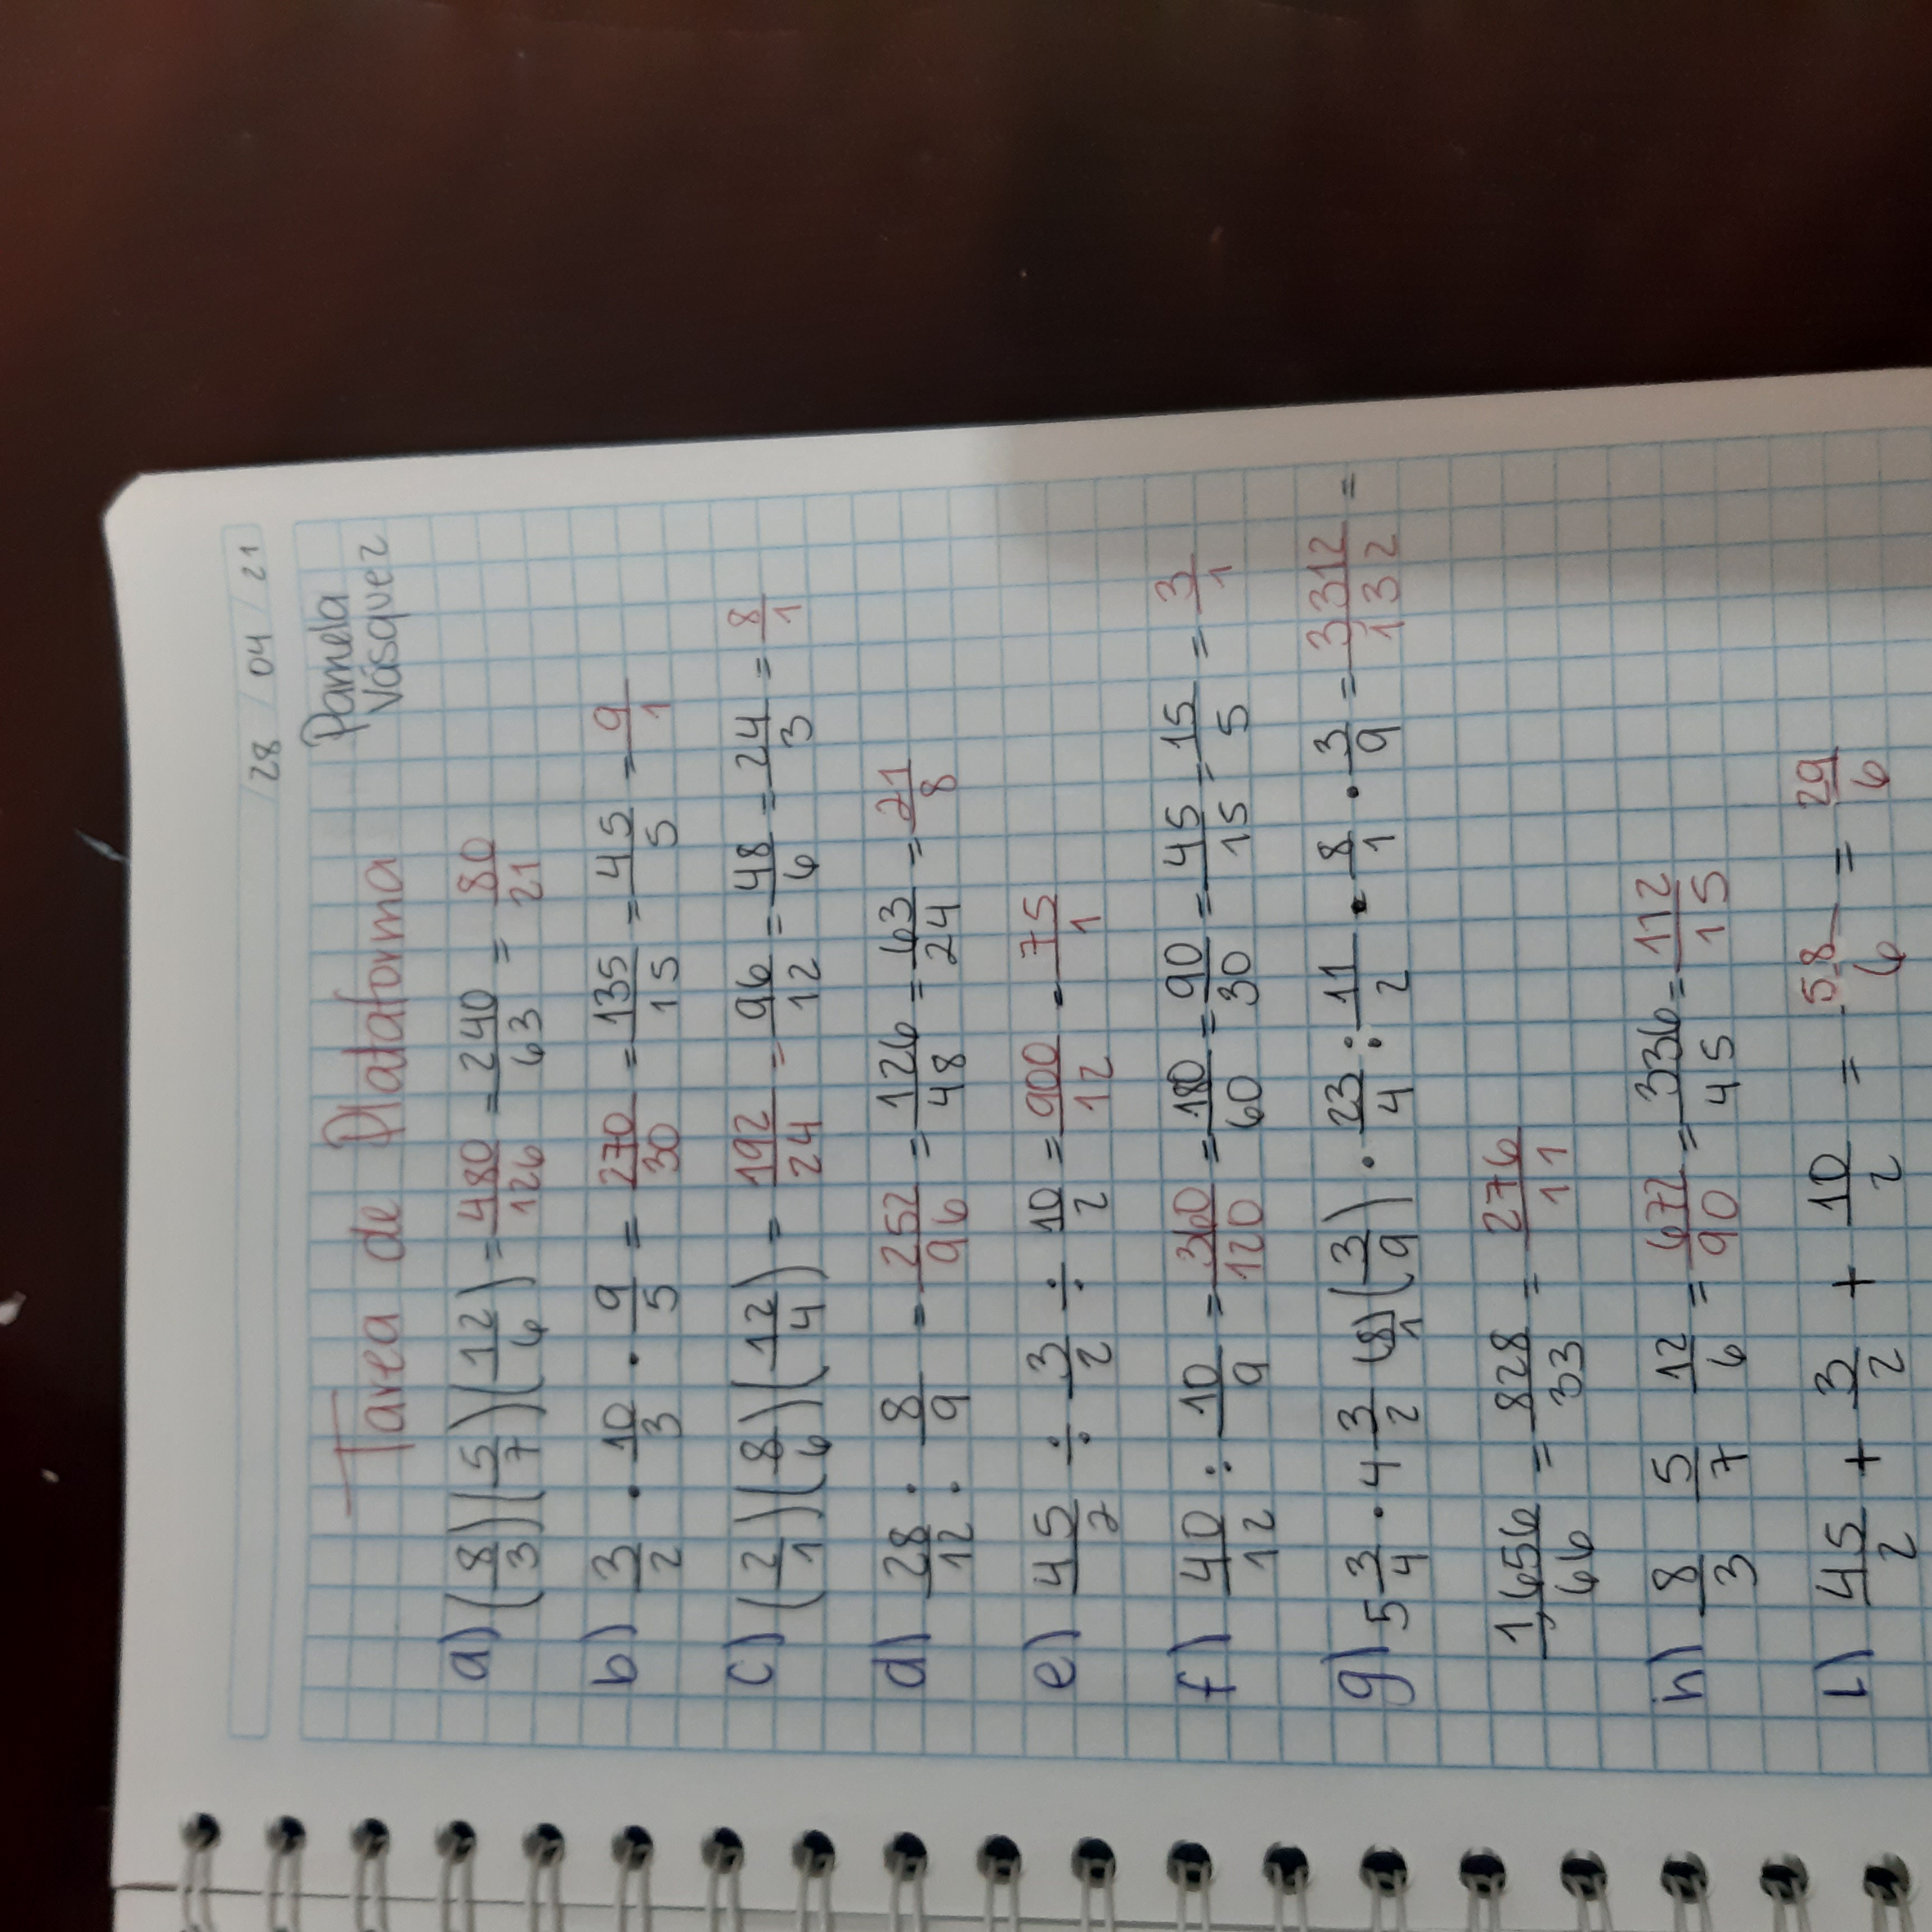 28 / 04 / 21
Tarea de Plataforma Pamela Vásquez
a) (8/3)(5/7)(12/6) = 480/126 = 240/63 = 80/21
b) 3/2 · 10/3 · 9/5 = 270/30 = 135/15 = 45/5 = 9/1
c) (2/1)(8/6)(12/4) = 192/24 = 96/12 = 48/6 = 24/3 = 8/1
d) 28/12 : 8/9 = 252/96 = 126/48 = 63/24 = 21/8
e) 45/2 ÷ 3/2 ÷ 10/2 = 900/12 - 75/1
f) 40/12 : 10/9 = 360/120 = 180/60 = 90/30 = 45/15 = 15/5 = 3/1
g) 5 3/4 · 4 3/2 (8/1)(3/9) · 23/4 : 11/2 · 8/1 · 3/9 = 3312/132 =
1,656/66 = 828/33 = 276/11
h) 8/3 5/7 12/6 = 672/90 = 336/45 = 112/15
i) 45/2 + 3/2 + 10/2 = 58/6 = 29/6